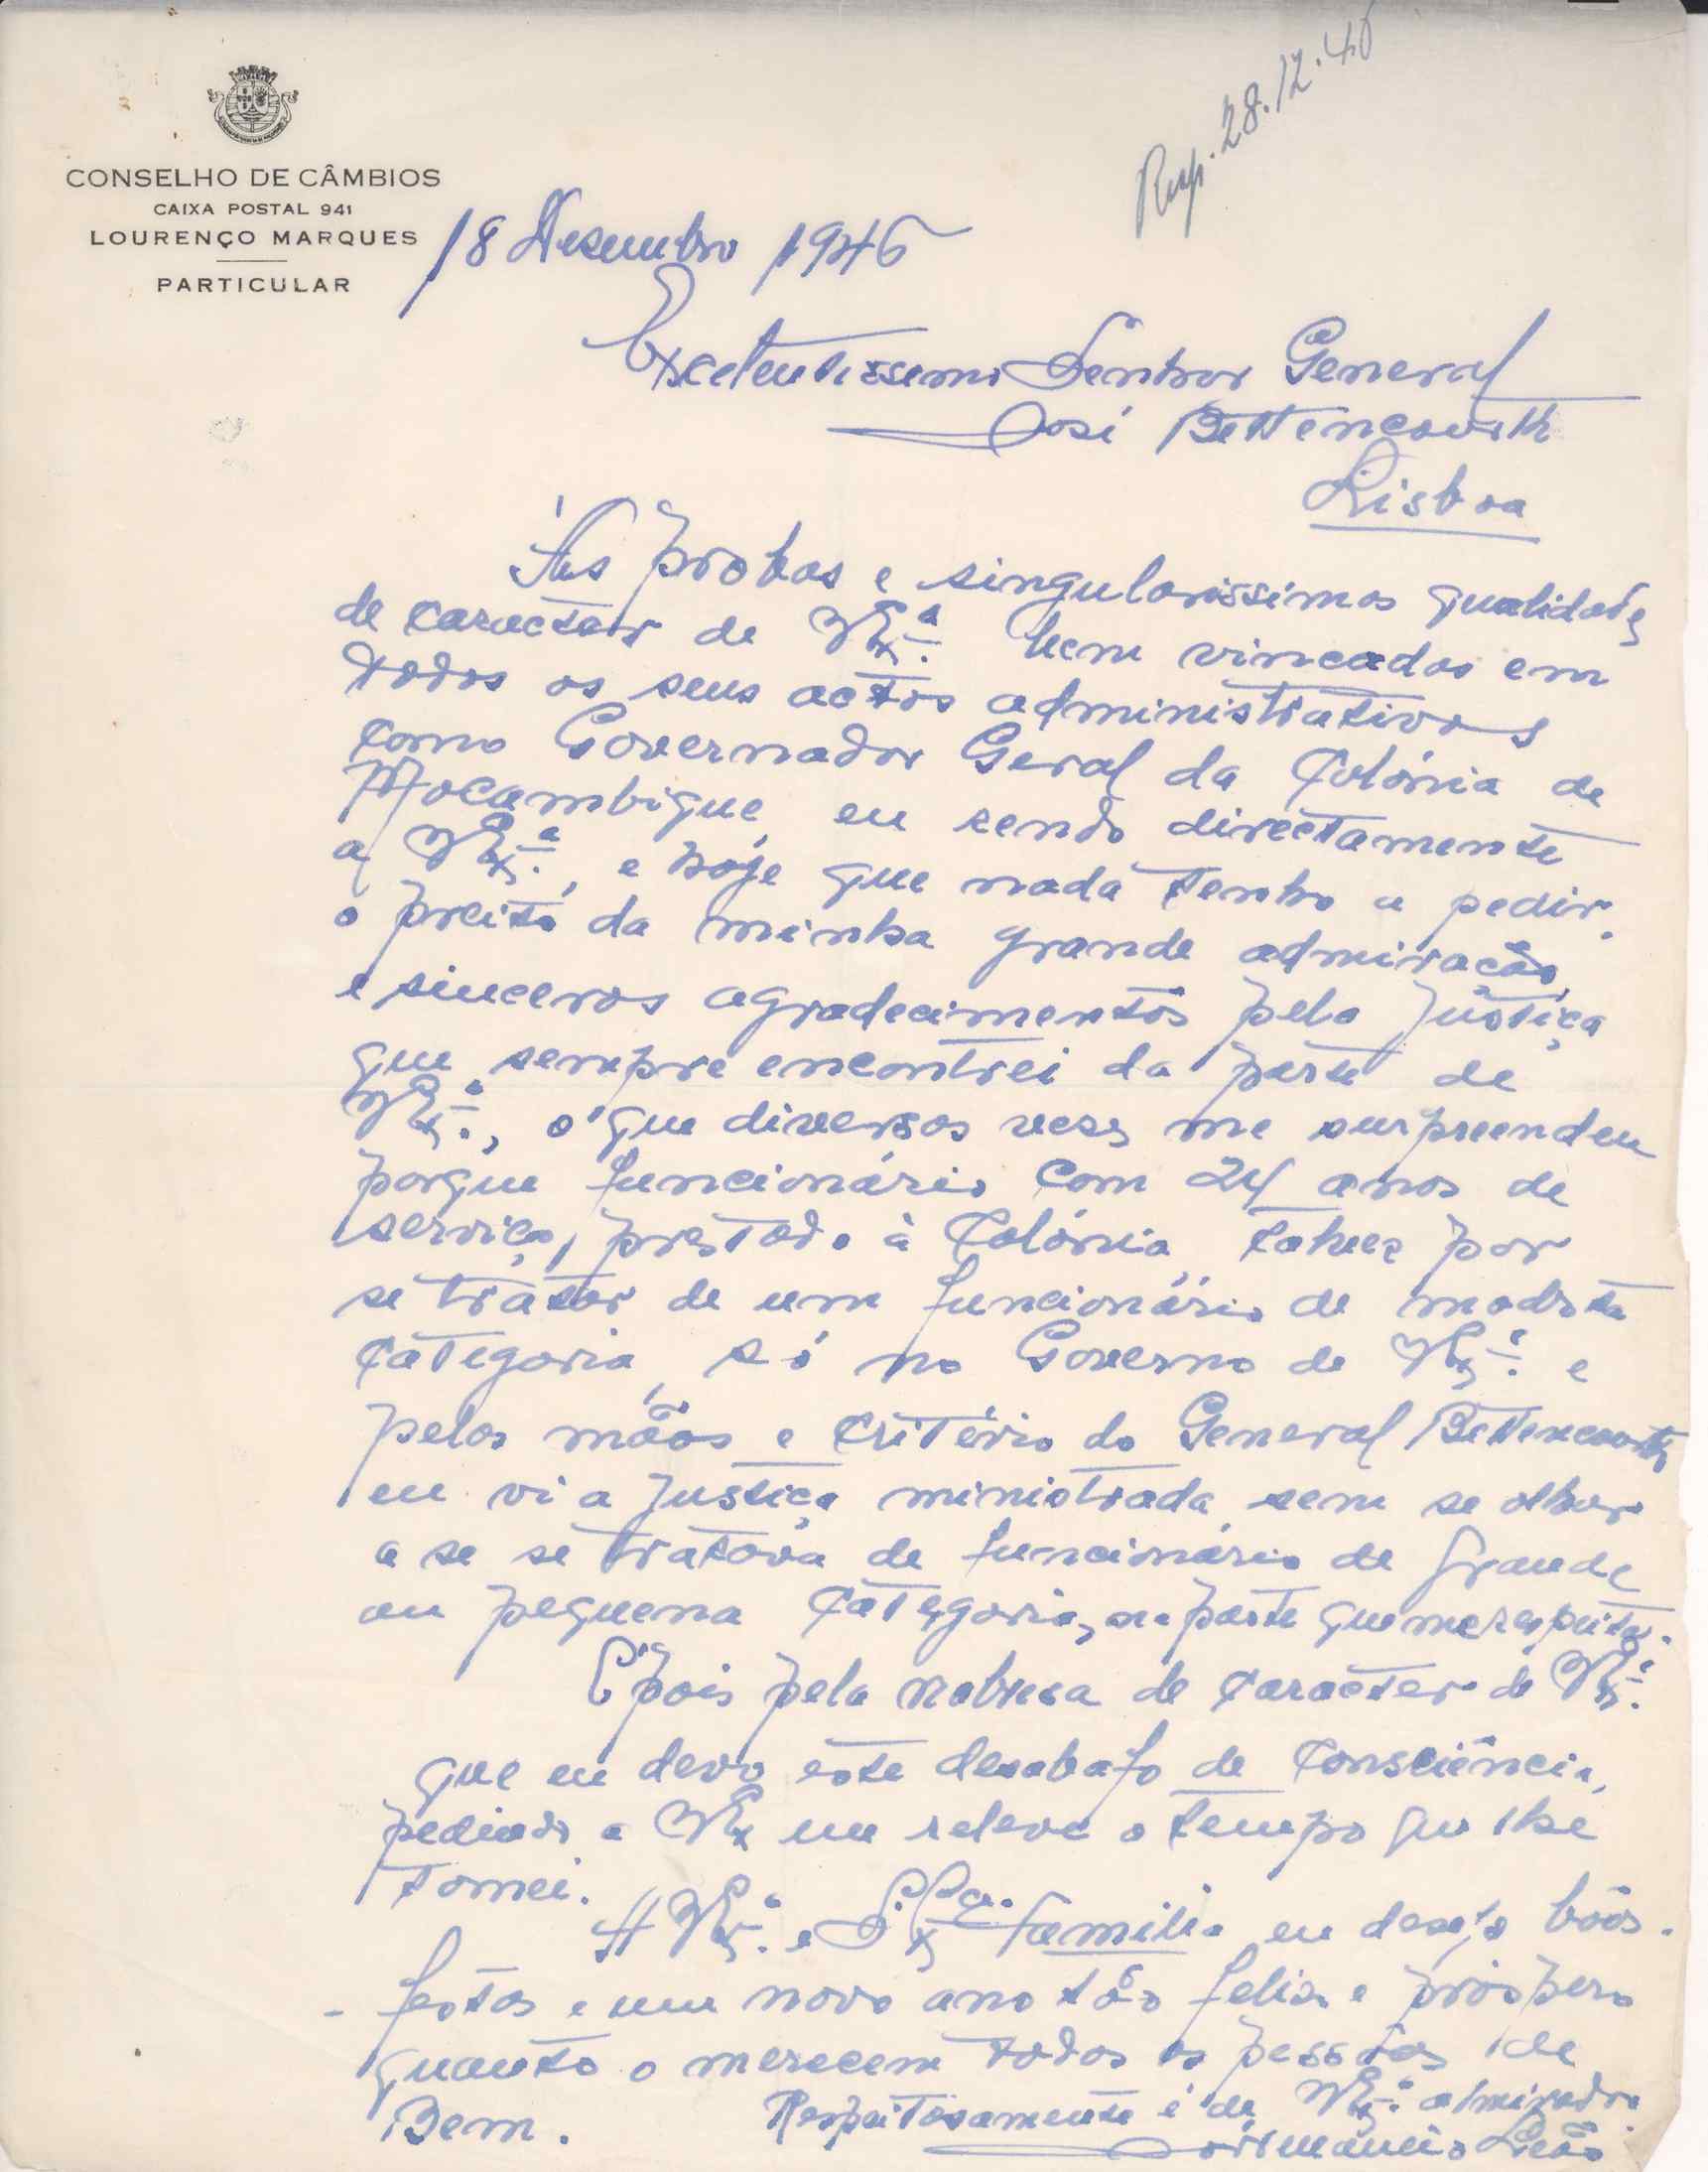 Resp. 28.12.46
CONSELHO DE CÂMBIOS
CAIXA POSTAL 941
LOURENÇO MARQUES
PARTICULAR
18 Dezembro 1946
Excelentissimo Senhor General
José Bettencourth
Lisboa
Às probas e singularissimas qualidades
de caracter de V. Ex.ª bem vincadas em
todos os seus actos administrativos
como Governador Geral da Colónia de
Moçambique, eu rendo directamente
a V. Ex.ª, e hoje que nada tenho a pedir,
o preito da minha grande admiração
e sinceros agradecimentos pela justiça
que sempre encontrei da parte de
V. Ex.ª, o que diversas veses me surpreendeu
porque funcionário com 24 anos de
serviço prestado à Colónia, talvez por
se tratar de um funcionário de modesta
categoria, só no Governo de V. Ex.ª e
pelas mãos e critério do General Bettencourth,
eu vi a justiça ministrada sem se olhar
a se se tratava de funcionário de grande
ou pequena categoria, na parte que me respeita.
É pois pela nobresa de caracter de V. Ex.ª
que eu devo este desabafo de consciência,
pedindo a V. Ex me releve o tempo que lhe
tomei.
A V. Ex.ª e S. Ex.ma família eu desejo bôas-
-festas e um novo ano tão felis e próspero
quanto o merecem todas as pessôas de
Bem.
Respeitosamente é de V. Ex.ª admirador
Leão